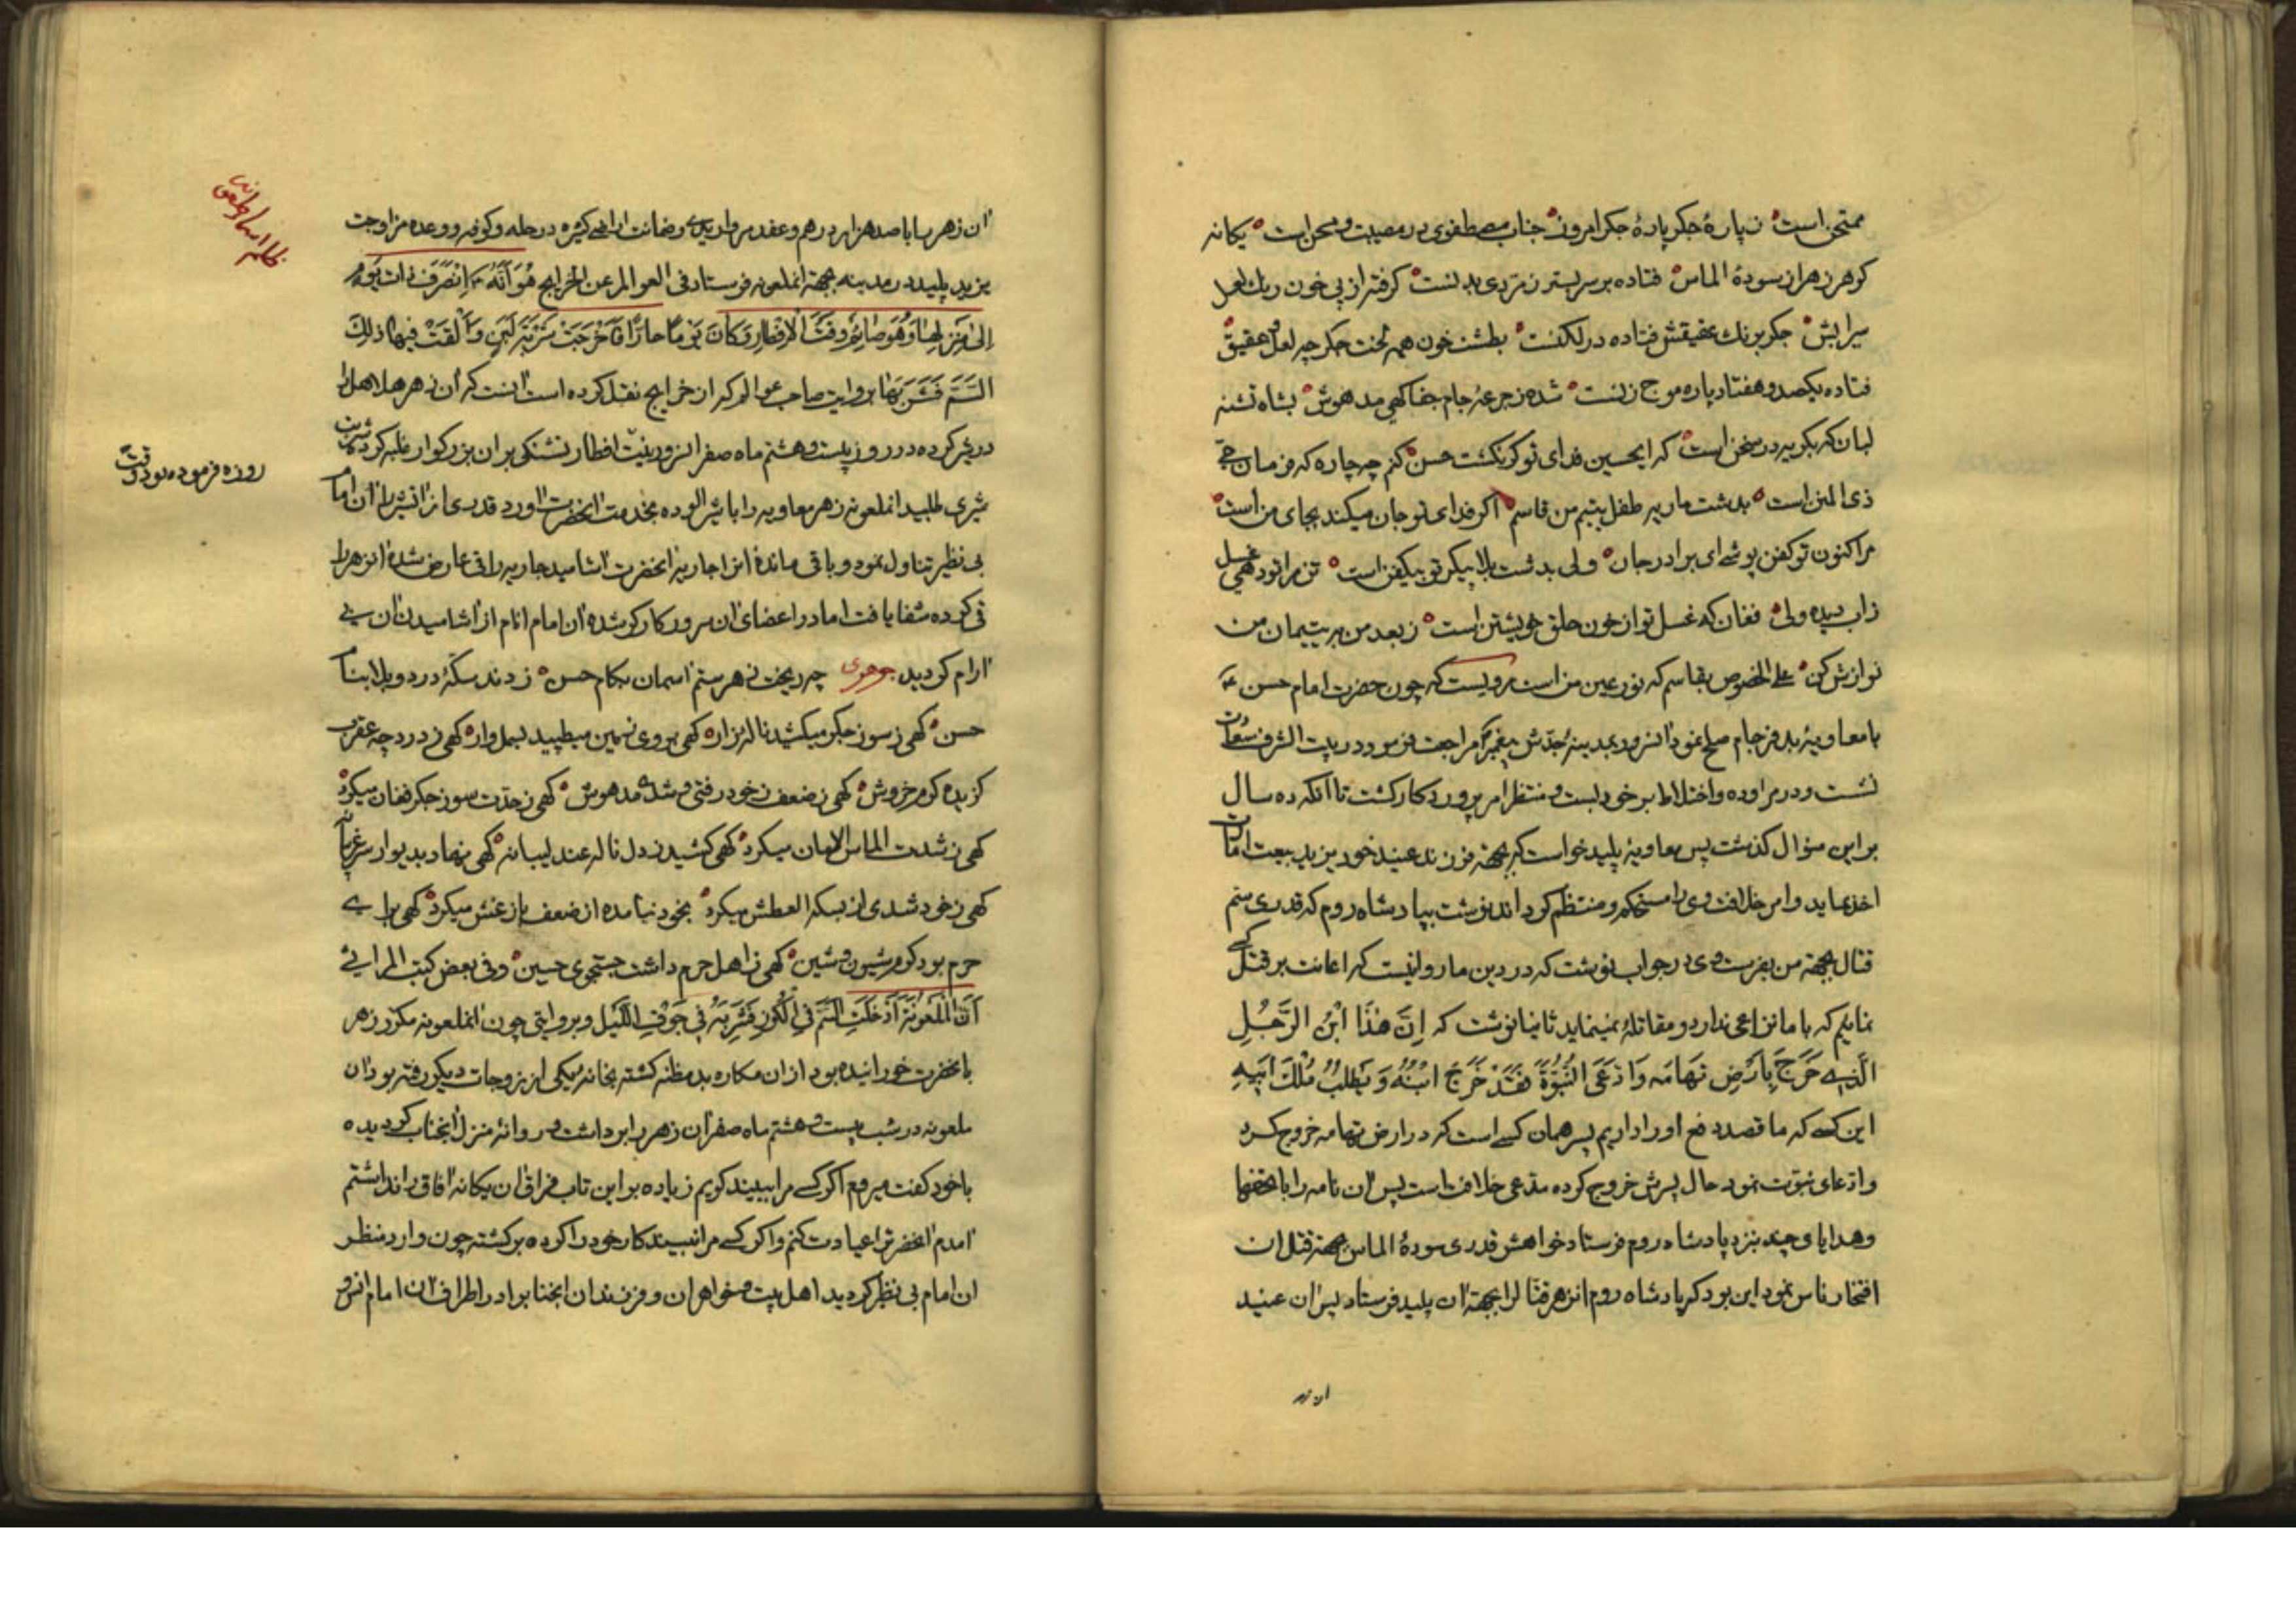 ممتحن است ز پارهٔ جکر پارهٔ جکر امروز جناب مصطفوی در مصیبت و محن است یکانه
کوهر زهرا ز سودهٔ الماس فتاده بر سر بستر زمردی بدنست کرفته از پی خون ریک لعل
سیرابش جکر برنک عقیقش فتاده در لکنست بطشت خون همه لخت جکر چه لعل و عقیق
فتاده یکصد و هفتاد پاره موج زنست شده ز جرعهٔ جام جفا کهی مدهوش بشاه تشنه
لبان که بکریه در سخن است که ایحسین فدای تو کر نکشت حسن کنم چه چاره که فرمان حی
ذی المنن است بدشت ماریه طفل یتیم من قاسم اکر فدای تو جان میکند بجای من است
مرا کنون تو کفن پوشی ای برادر جان ولی بدشت بلا پیکر تو بیکفن است تن مرا تو دهی غسل
زاب دیده ولی فغان که غسل تو از خون حلق خویشتن است ز بعد من به یتیمان من
نوازش کن علی الخصوص بقاسم که نور عین من است مرویست که چون حضرت امام حسن ع
با معاویهٔ بد فرجام صلح نمود انسرور بمدینهٔ جدش پیغمبر مراجعت فرمود در بیت الشرف سعادت
نشست و در مراوده و اختلاط بر خود بست و منتظر امر پروردکار کشت تا آنکه ده سال
بر این منوال کذشت پس معاویهٔ پلید خواست که بجهة فرزند عنید خود یزید بیعت امامت
اخذ نماید و امر خلافت وی را مستحکم و منتظم کرداند نوشت بپادشاه روم که قدری سم
قتال بجهة من بفرست وی در جواب نوشت که در دین ما روا نیست که اعانت بر قتل کسی
نمائیم که با ما نزاعی ندارد و مقاتله نمینماید ثانیا نوشت که اِنَّ هٰذَا ابْنُ الرَّجُلِ
الَّذی خَرَجَ بِاَرْضِ تَهَامَه وَادَّعَی النُّبُوَّةَ فَقَدْ خَرَجَ ابْنُهُ وَ یَطْلُبُ مُلْكَ اَبیهِ
این کسی که ما قصد دفع او را داریم پسر همان کسی است که در ارض تهامه خروج کرد
و ادعای نبوت نمود حال پسرش خروج کرده مدعی خلافت است پس ان نامه را با تحفها
و هدایای چند بنزد پادشاه روم فرستاد خواهش قدری سودهٔ الماس بجهة قتل ان
افتخار ناس نمود این بود که پادشاه روم انزهر قتال را بجهة ان پلید فرستاد پس ان عنید
ان زهر
ان زهر را با صد هزار درهم و عقد مرواریدی و ضمانت اراضی کثیره در حله و کوفه و وعده مزاوجت
یزید پلید در مدینه بجهة انملعونه فرستاد فی العوالم عن الخرایج هُوَ اَنَّهُ ع اِنْصَرَفَ ذات یَوْمٍ
اِلیٰ مَنْزِلِهِ وَ هُوَ صٰائِمٌ وَقْتَ الْاِفْطارِ وَ کانَ یَوْمًا حارًّا فَاَخْرَجَتْ شَرْبَةَ لَبَنٍ وَ اَلْقَتْ فیها ذلِكَ
السَّمَّ فَشَرِبَهٰا بروایت صاحب عوالم که از خرایج نقل کرده است انست که ان زهر هلاهل را
در شیر کرده در روز بیست و هشتم ماه صفر انسرور بنیت افطار تشنکی بر ان بزرکوار غلبه کرد شربت
روزه فرموده بود وقت
شیری طلبید انملعونه زهر معاویه را با شیر الوده بخدمت انحضرت اورد قدری از انشیر را ان امام
بی نظیر تناول نمود و باقی ماندهٔ انرا جاریهٔ انحضرت اشامید جاریه را قی عارض شده انزهر را
قی کرده شفا یافت اما در اعضای ان سرور کارکر شده ان امام انام از اشامیدن ان بی
ارام کردید جوهری چه ریخت زهر ستم اسمان بکام حسن زدند سکهٔ درد و بلا بنام
حسن کهی ز سوز جکر میکشید ناله زار کهی بروی زمین میطپید بسمل وار کهی ز درد چه عقرب
کزیده کرم خروش کهی ز ضعف ز خود رفتی و شدی مدهوش کهی ز حدت سوز جکر فغان میکرد
کهی ز شدت الماس الامان میکرد کهی کشید ز دل ناله عندلیبانه کهی نهاد بدیوار سر غریبانه
کهی ز خود شدی از بسکه العطش میکرد بخود نیامده از ضعف باز غش میکرد کهی برای
حرم بود کرم شیون و شین کهی ز اهل حرم داشت جستجوی حسین و فی بعض کتب المراثی
اَنَّ الْمَلْعُونَةَ اَدْخَلَتِ السَّمَّ فِی الْکُوزِ فَشَرِبَهُ فی جَوْفِ اللَّیْلِ و بروایتی چون انملعونه مکرر زهر
بانحضرت خورانیده بود از ان مکاره بد مظنه کشته بخانه یکی از زوجات دیکر رفته بود ان
ملعونه در شب بیست و هشتم ماه صفر ان زهر را برداشت و روانهٔ منزل انجناب کردیده
با خود کفت میروم اکر کسی مرا ببیند کویم زیاده بر این تاب فراق ان یکانه افاق را نداشتم
امدم انحضرترا عیادت کنم و اکر کسی مرا نبیند کار خود را کرده برکشته چون وارد منظر
ان امام بی نظیر کردید اهل بیت و خواهران و فرزندان انجناب را در اطراف ان امام انس و